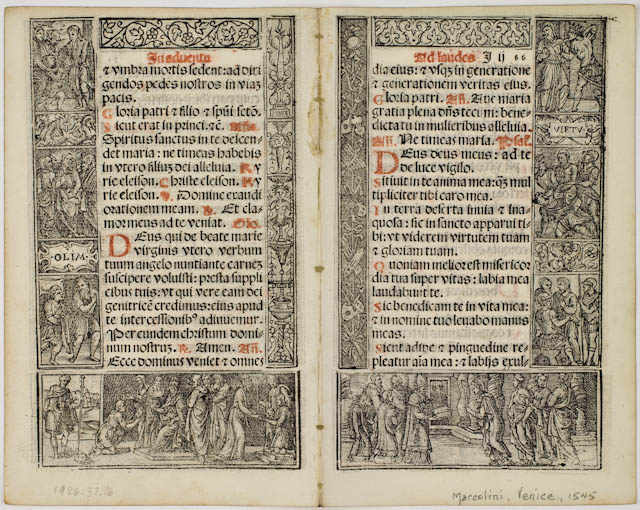 In aduentu
⁊ vmbra mortis sedent: ad diri
gendos pedes nostros in viaȝ
pacis.
Gloria patri ⁊ filio ⁊ spūi scto.
Sicut erat in princi. ⁊c̄. Añā
Spiritus sanctus in te descen-
det maria: ne timeas habebis
in vtero filiuȝ dei alleluia. Ky
rie eleison. Christe eleison. Ky
rie eleison. Domine exaudi
orationem meam. ℟. Et cla-
mor meus ad te veniat. Orō.
DEus qui de beate marie
virginis vtero verbum
tuum angelo nuntiante carneȝ
suscipere voluisti: presta suppli
cibus tuis: vt qui vere eam dei
genitricē credimus: eius apud
te intercessionibꝰ adiuuemur.
Per eundem christum domi-
num nostruȝ. ℟. Amen. Añ.
Ecce dominus veniet ⁊ omnes
OLIM
1986.37.16
Ad laudes I ij 66
dia eius: ⁊ vsqȝ in generatione
⁊ generationem veritas eius.
Gloria patri. Añ. Aue maria
gratia plena dñs tecū: bene-
dicta tu in mulieribus alleluia.
Añ. Ne timeas maria. Psal.
DEus deus meus: ad te
de luce vigilo.
Sitiuit in te anima mea: qȝ mul
tipliciter tibi caro mea.
In terra deserta inuia ⁊ ina-
quosa: sic in sancto apparui ti-
bi: vt viderem virtutem tuam
⁊ gloriam tuam.
Quoniam melior est misericor
dia tua super vitas: labia mea
laudabunt te.
Sic benedicam te in vita mea:
⁊ in nomine tuo leuabo manus
meas.
Sicut adipe ⁊ pinguedine re-
pleatur aīa mea: ⁊ labijs exul-
VIRTV
Marcolini, Venice, 1545